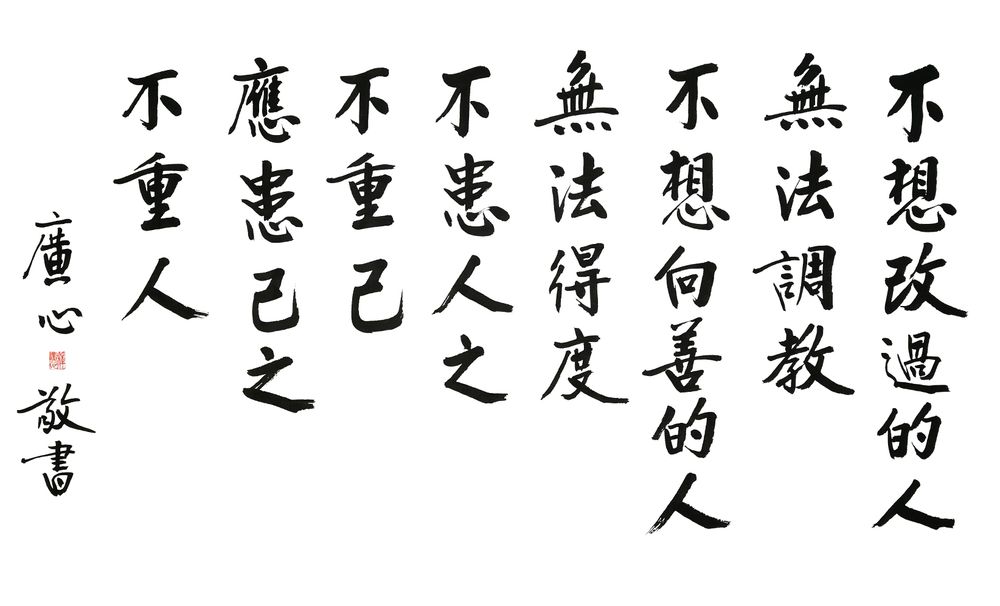 不想改過的人
無法調教
不想向善的人
無法得度
不患人之
不重己
應患己之
不重人
廣心
敬書